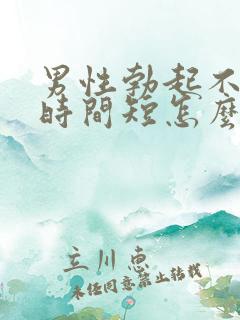 男性勃起不
時間短怎麼
立川惠
未经同意禁止转载